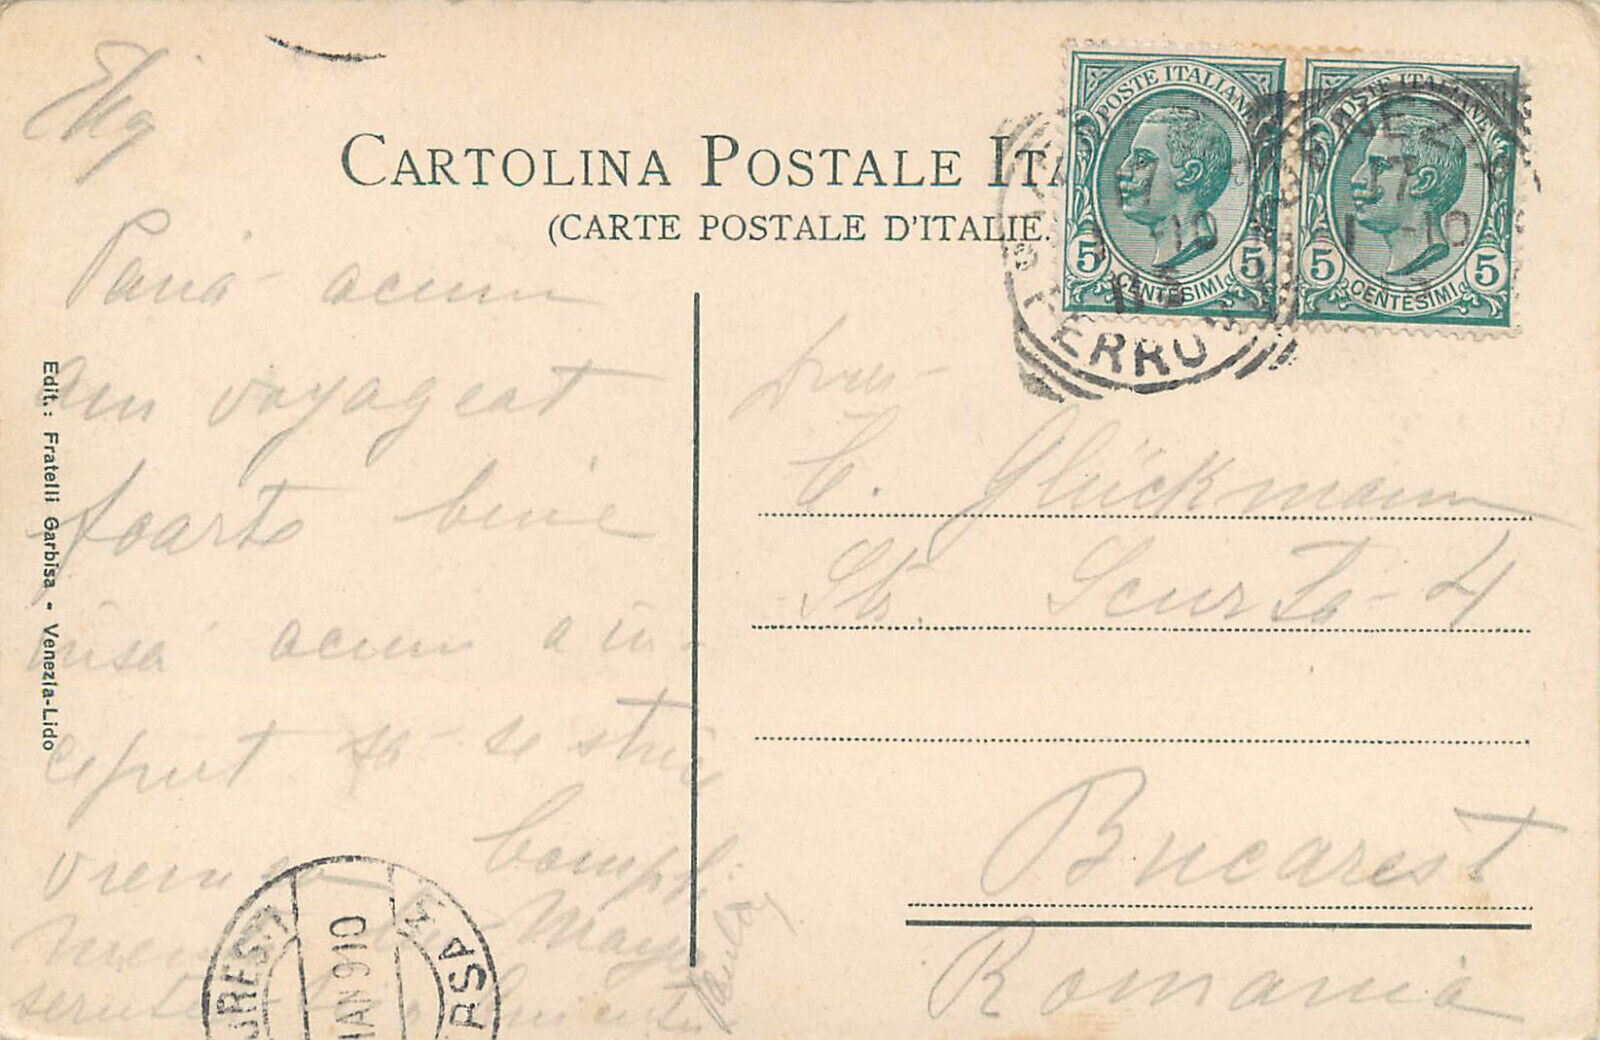 CARTOLINA POSTALE ITA
(CARTE POSTALE D'ITALIE.
POSTE ITALIANE
5 CENTESIMI 5
POSTE ITALIANE
5 CENTESIMI 5
VENEZIA
17
1 -10
FERROVIA
Edit.: Fratelli Garbisa - Venezia-Lido
Pană acum
am voyageat
foarte bine
însă acum a în-
ceput să se strice
vremea Compli
Dnei
C. Glückmann
Str. Scurta 4
Bucarest
Romania
IAN 910